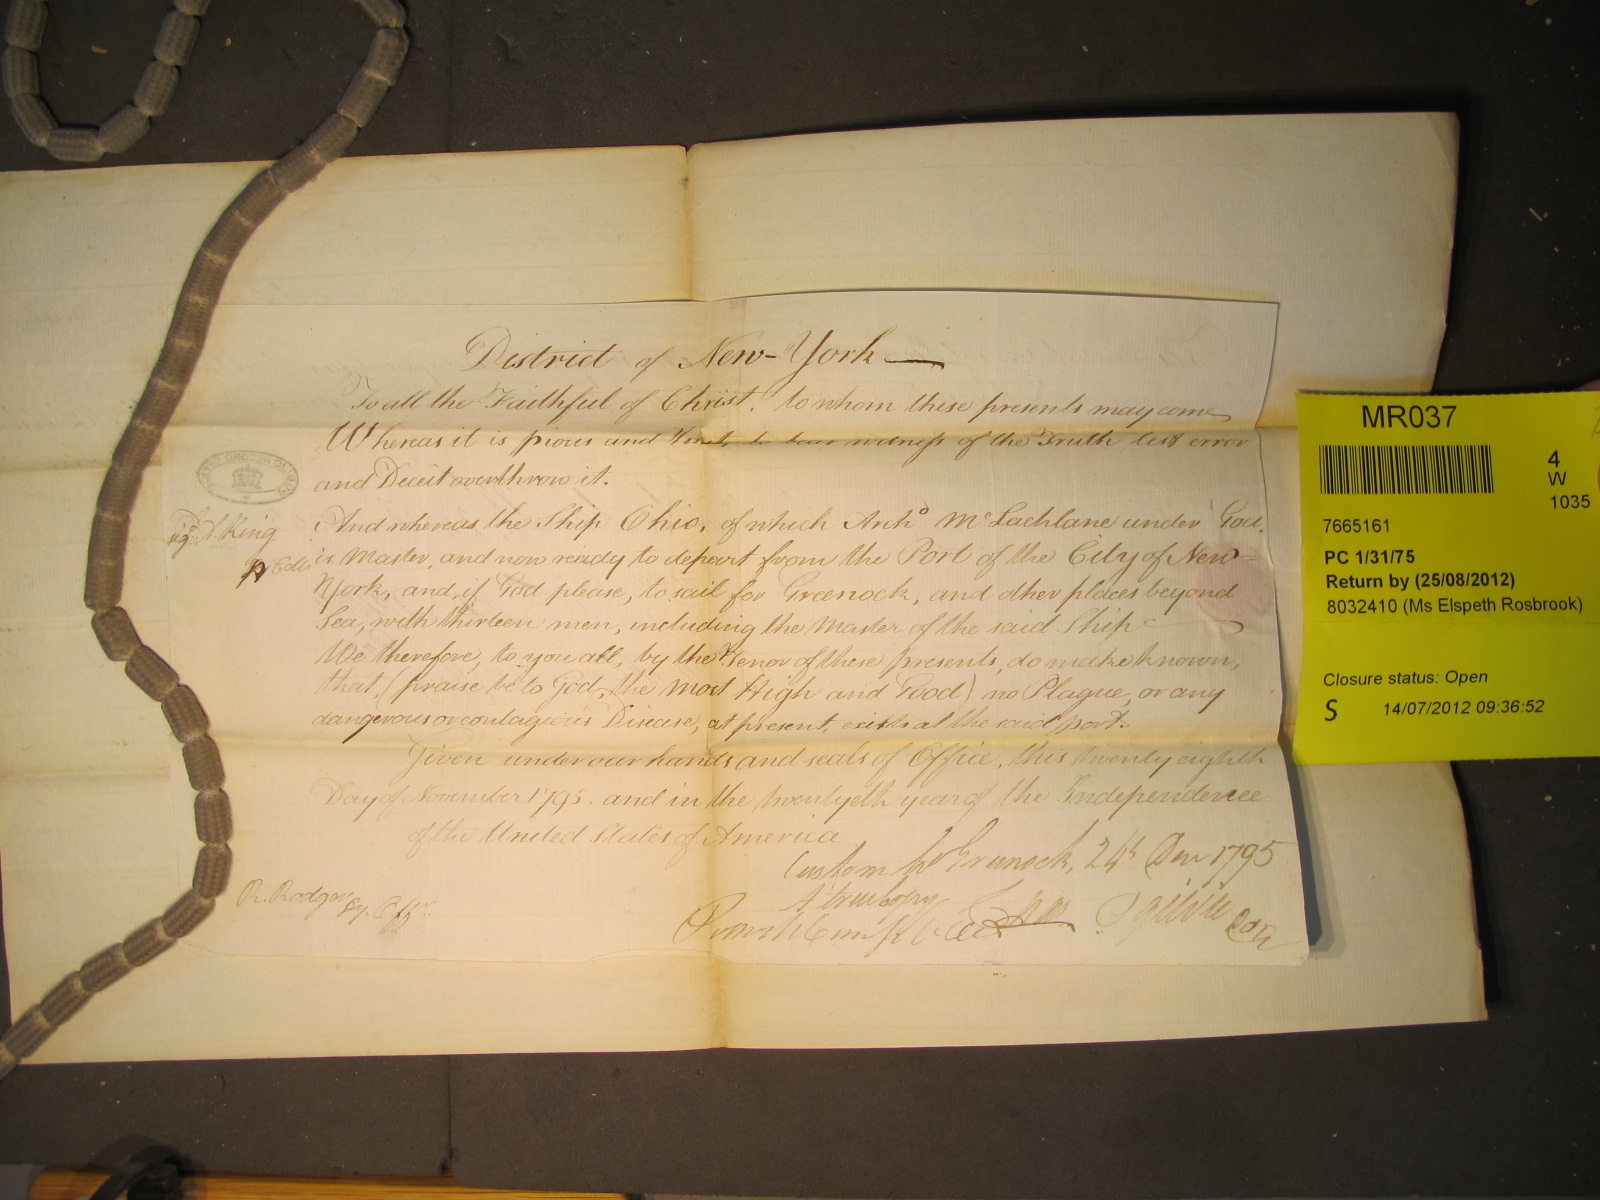 District of New-York
To all the Faithful of Christ, to whom these presents may come
Whereas it is pious and just to bear witness of the Truth lest error
and Deceit overthrow it.
And whereas the Ship Ohio, of which Archd McLachlane under God,
is Master, and now ready to depart from the Port of the City of New-
York, and, if God please, to sail for Greenock, and other places beyond
Sea, with thirteen men, including the Master of the said Ship
We therefore, to you all, by the Tenor of these presents, do make known,
that, (praise be to God, the most High and Good) no Plague, or any
dangerous or contagious Disease, at present, exists at the said port.
Given under our hands and seals of Office, this twenty eighth
Day of November 1795. and in the twentyeth year of the Independence
of the United States of America
King
Custom Ho Greenock, 24th Decr 1795
A true Copy
R. Rodgers
MR037
4
W
1035
7665161
PC 1/31/75
Return by (25/08/2012)
8032410 (Ms Elspeth Rosbrook)
Closure status: Open
S 14/07/2012 09:36:52